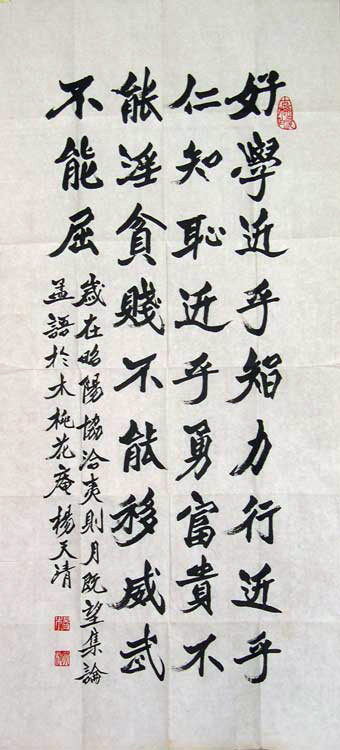 好學近乎智力行近乎
仁知恥近乎勇富貴不
能淫貧賤不能移威武
不能屈
歲在昭陽協洽夷則月既望集論
孟語於木花庵楊天清